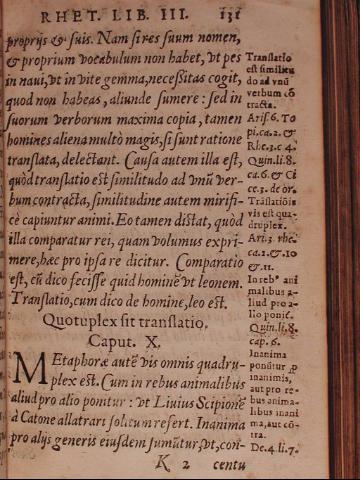 RHET. LIB. III. 131
proprijs & suis. Nam si res suum nomen,
& proprium vocabulum non habet, vt pes
in naui, vt in vite gemma, necessitas cogit,
quod non habeas, aliunde sumere: sed in
suorum verborum maxima copia, tamen
homines aliena multò magis, si sunt ratione
translata, delectant. Causa autem illa est,
quòd translatio est similitudo ad vnū ver-
bum contracta, similitudine autem mirifi-
cè capiuntur animi. Eo tamen distat, quòd
illa comparatur rei, quam volumus expri-
mere, hæc pro ipsa re dicitur. Comparatio
est, cū dico fecisse quid hominē vt leonem.
Translatio, cum dico de homine, leo est.
Quotuplex sit translatio.
Caput. X.
MEtaphoræ autē vis omnis quadru-
plex est. Cum in rebus animalibus
aliud pro alio ponitur: vt Liuius Scipionē
à Catone allatrari solitum refert. Inanima
pro alijs generis eiusdem sumūtur, vt, con-
K 2 centu
Translatio
est similitu
do ad vnū
verbum cō
tracta.
Arist. 6. To
pi. ca. 2. &
Rhe. 3. c. 4.
Quin. li. 8.
ca. 6. & Ci
ce. 3. de or.
Trāslatiōis
vis est qua-
druplex.
Ari. 3. rhe.
ca. 2. & 10
& 11.
In rebꝰ ani
malibus a-
liud pro a-
lio ponit̄.
Quin. li. 8.
cap. 6.
Inanima
ponūtur ꝓ
inanimis,
aut pro re-
bus anima-
libus inani
ma, aut cō-
tra.
De. 4. li. 7.